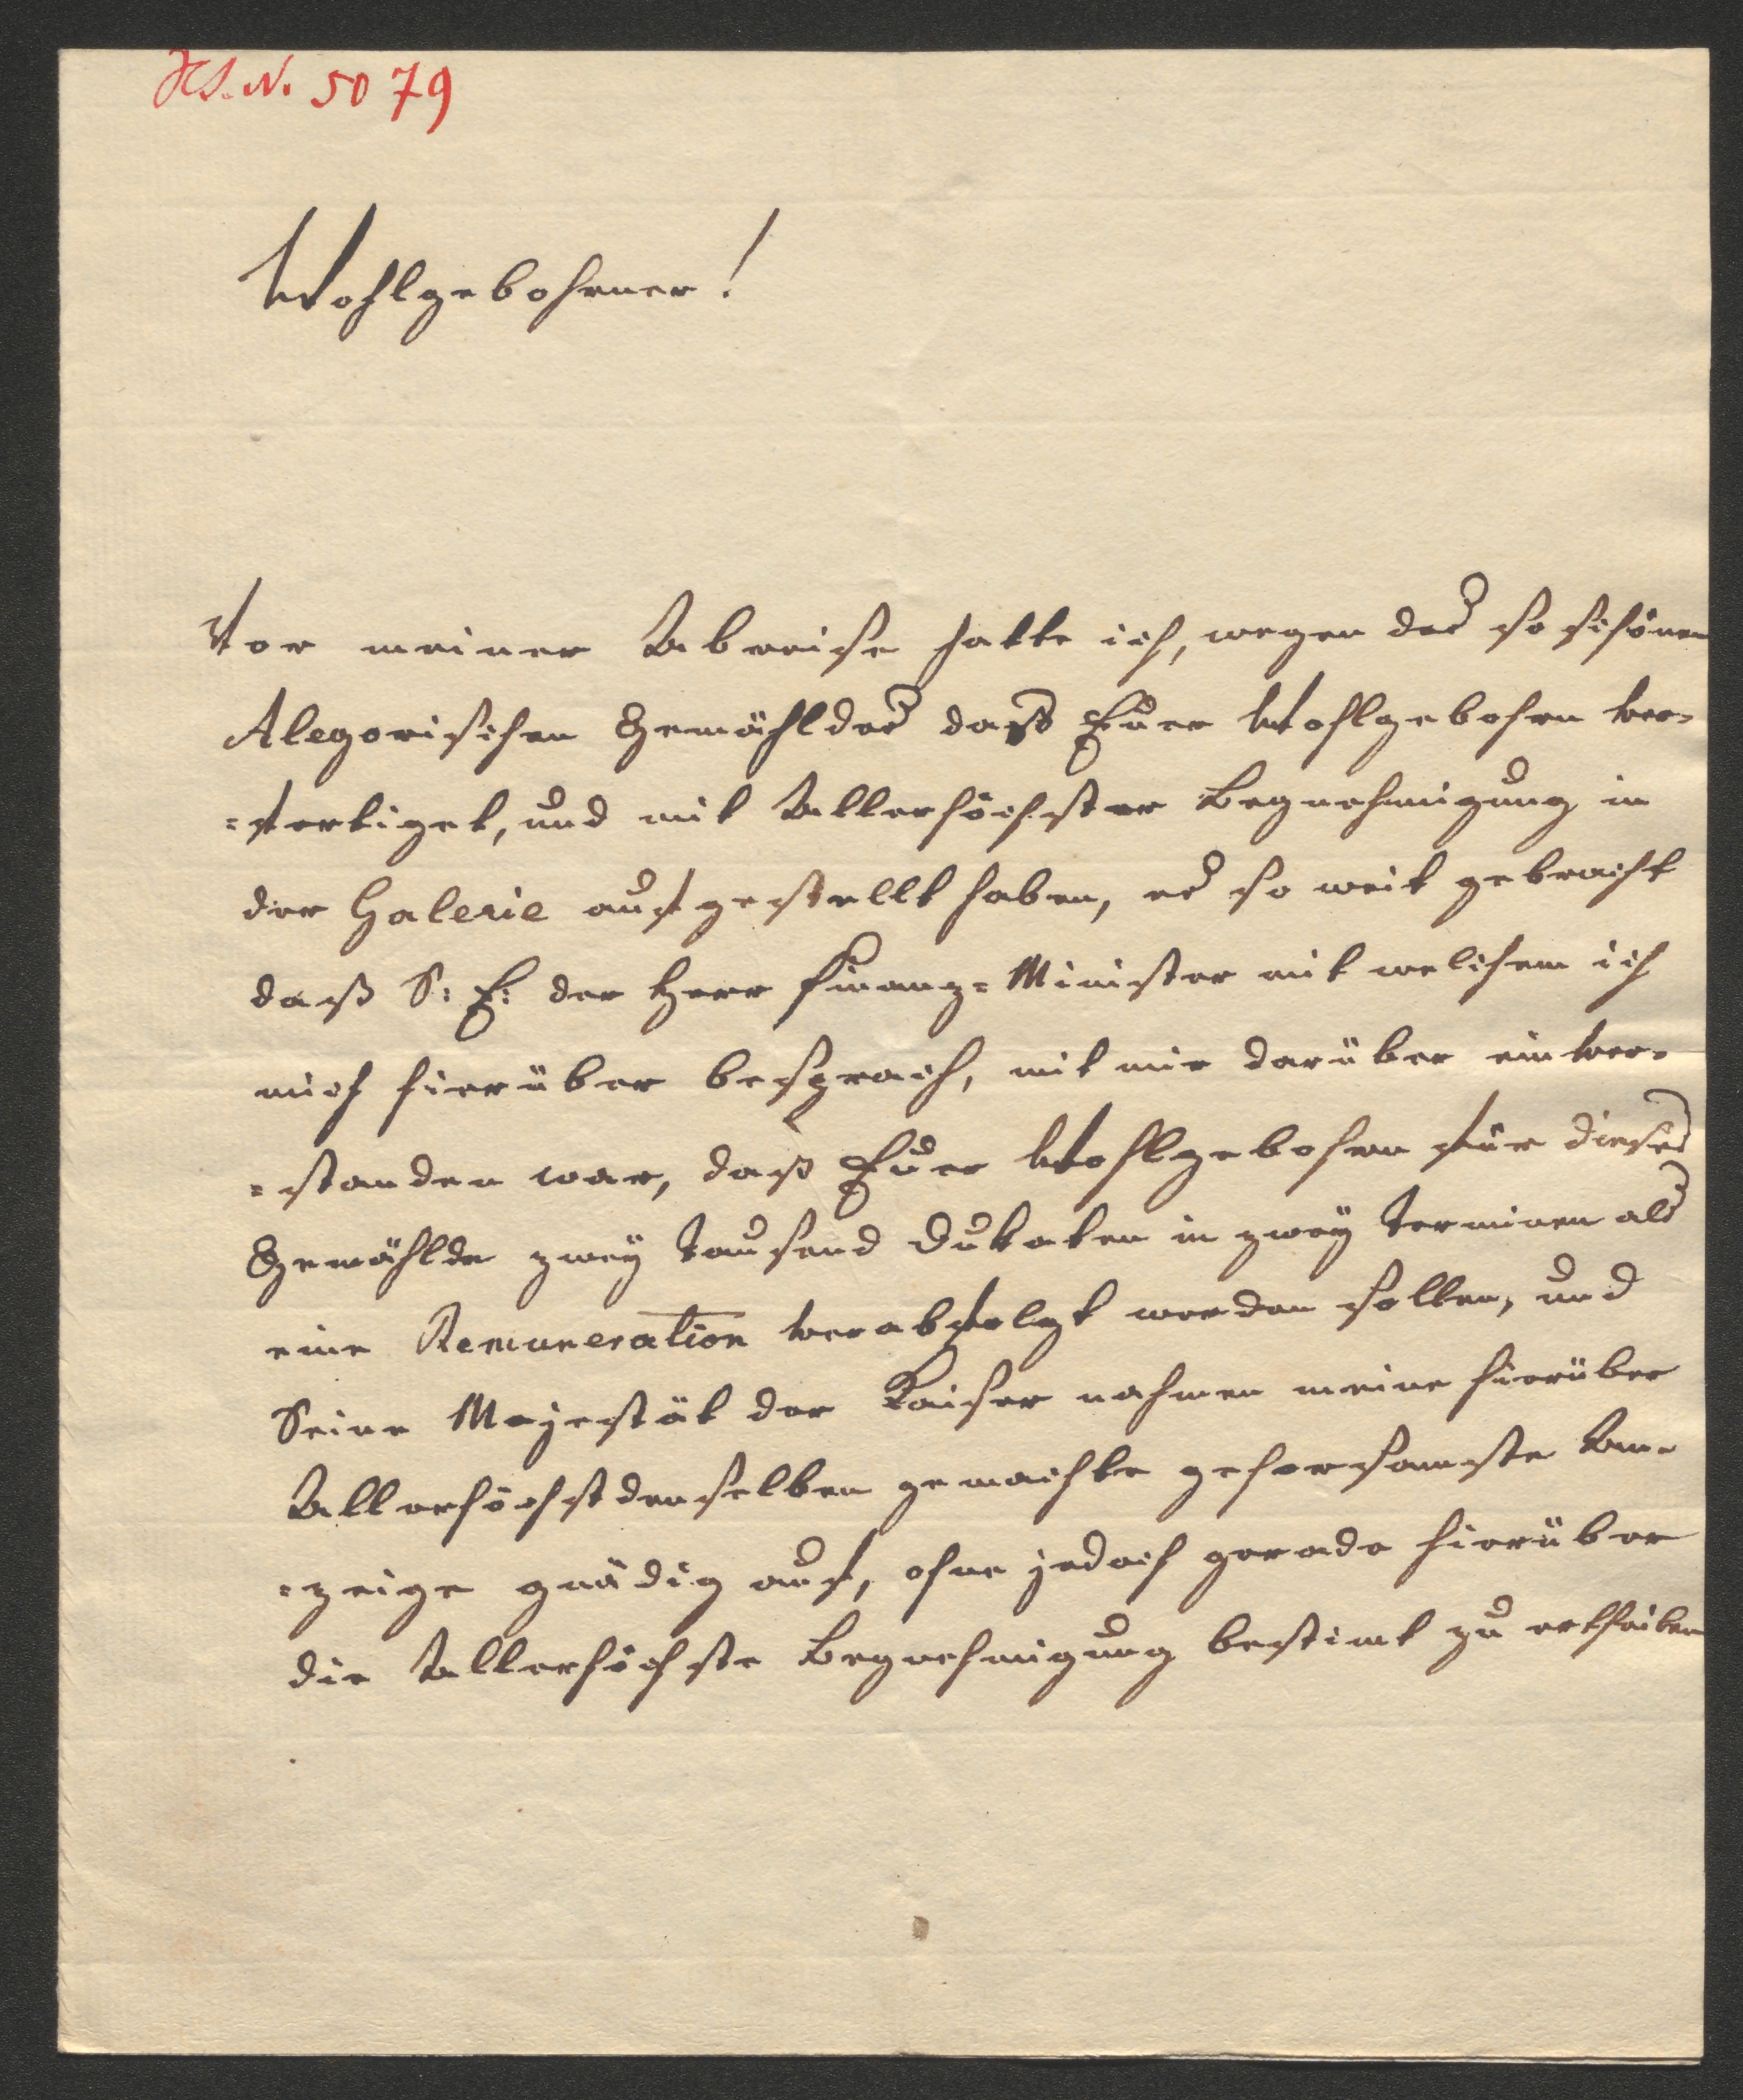 HS. N. 5079
Wohlgebohrner!
Vor meiner Abreise hatte ich, wegen des so schönen
Alegorischen Gemähldes daß Euer Wohlgebohrn ver-
=fertiget, und mit Allerhöchster Begnehmigung in
der Galerie aufgestellt haben, es so weit gebracht
daß S: E: der Herr Finanz=Minister mit welchem ich
mich hierüber besprach, mit mir darüber einver-
=standen war, daß Euer Wohlgebohrn für dieses
Gemählde zwey tausend Dukaten in zwey Terminen als
eine Remuneration verabfolgt werden sollen, und
Seine Majestät der Kaiser nahmen meine hierüber
Allerhöchstdenselben gemachte gehorsamste An-
=zeige gnädig auf, ohne jedoch gerade hierüber
die Allerhöchste Begnehmigung bestimt zu ertheilen